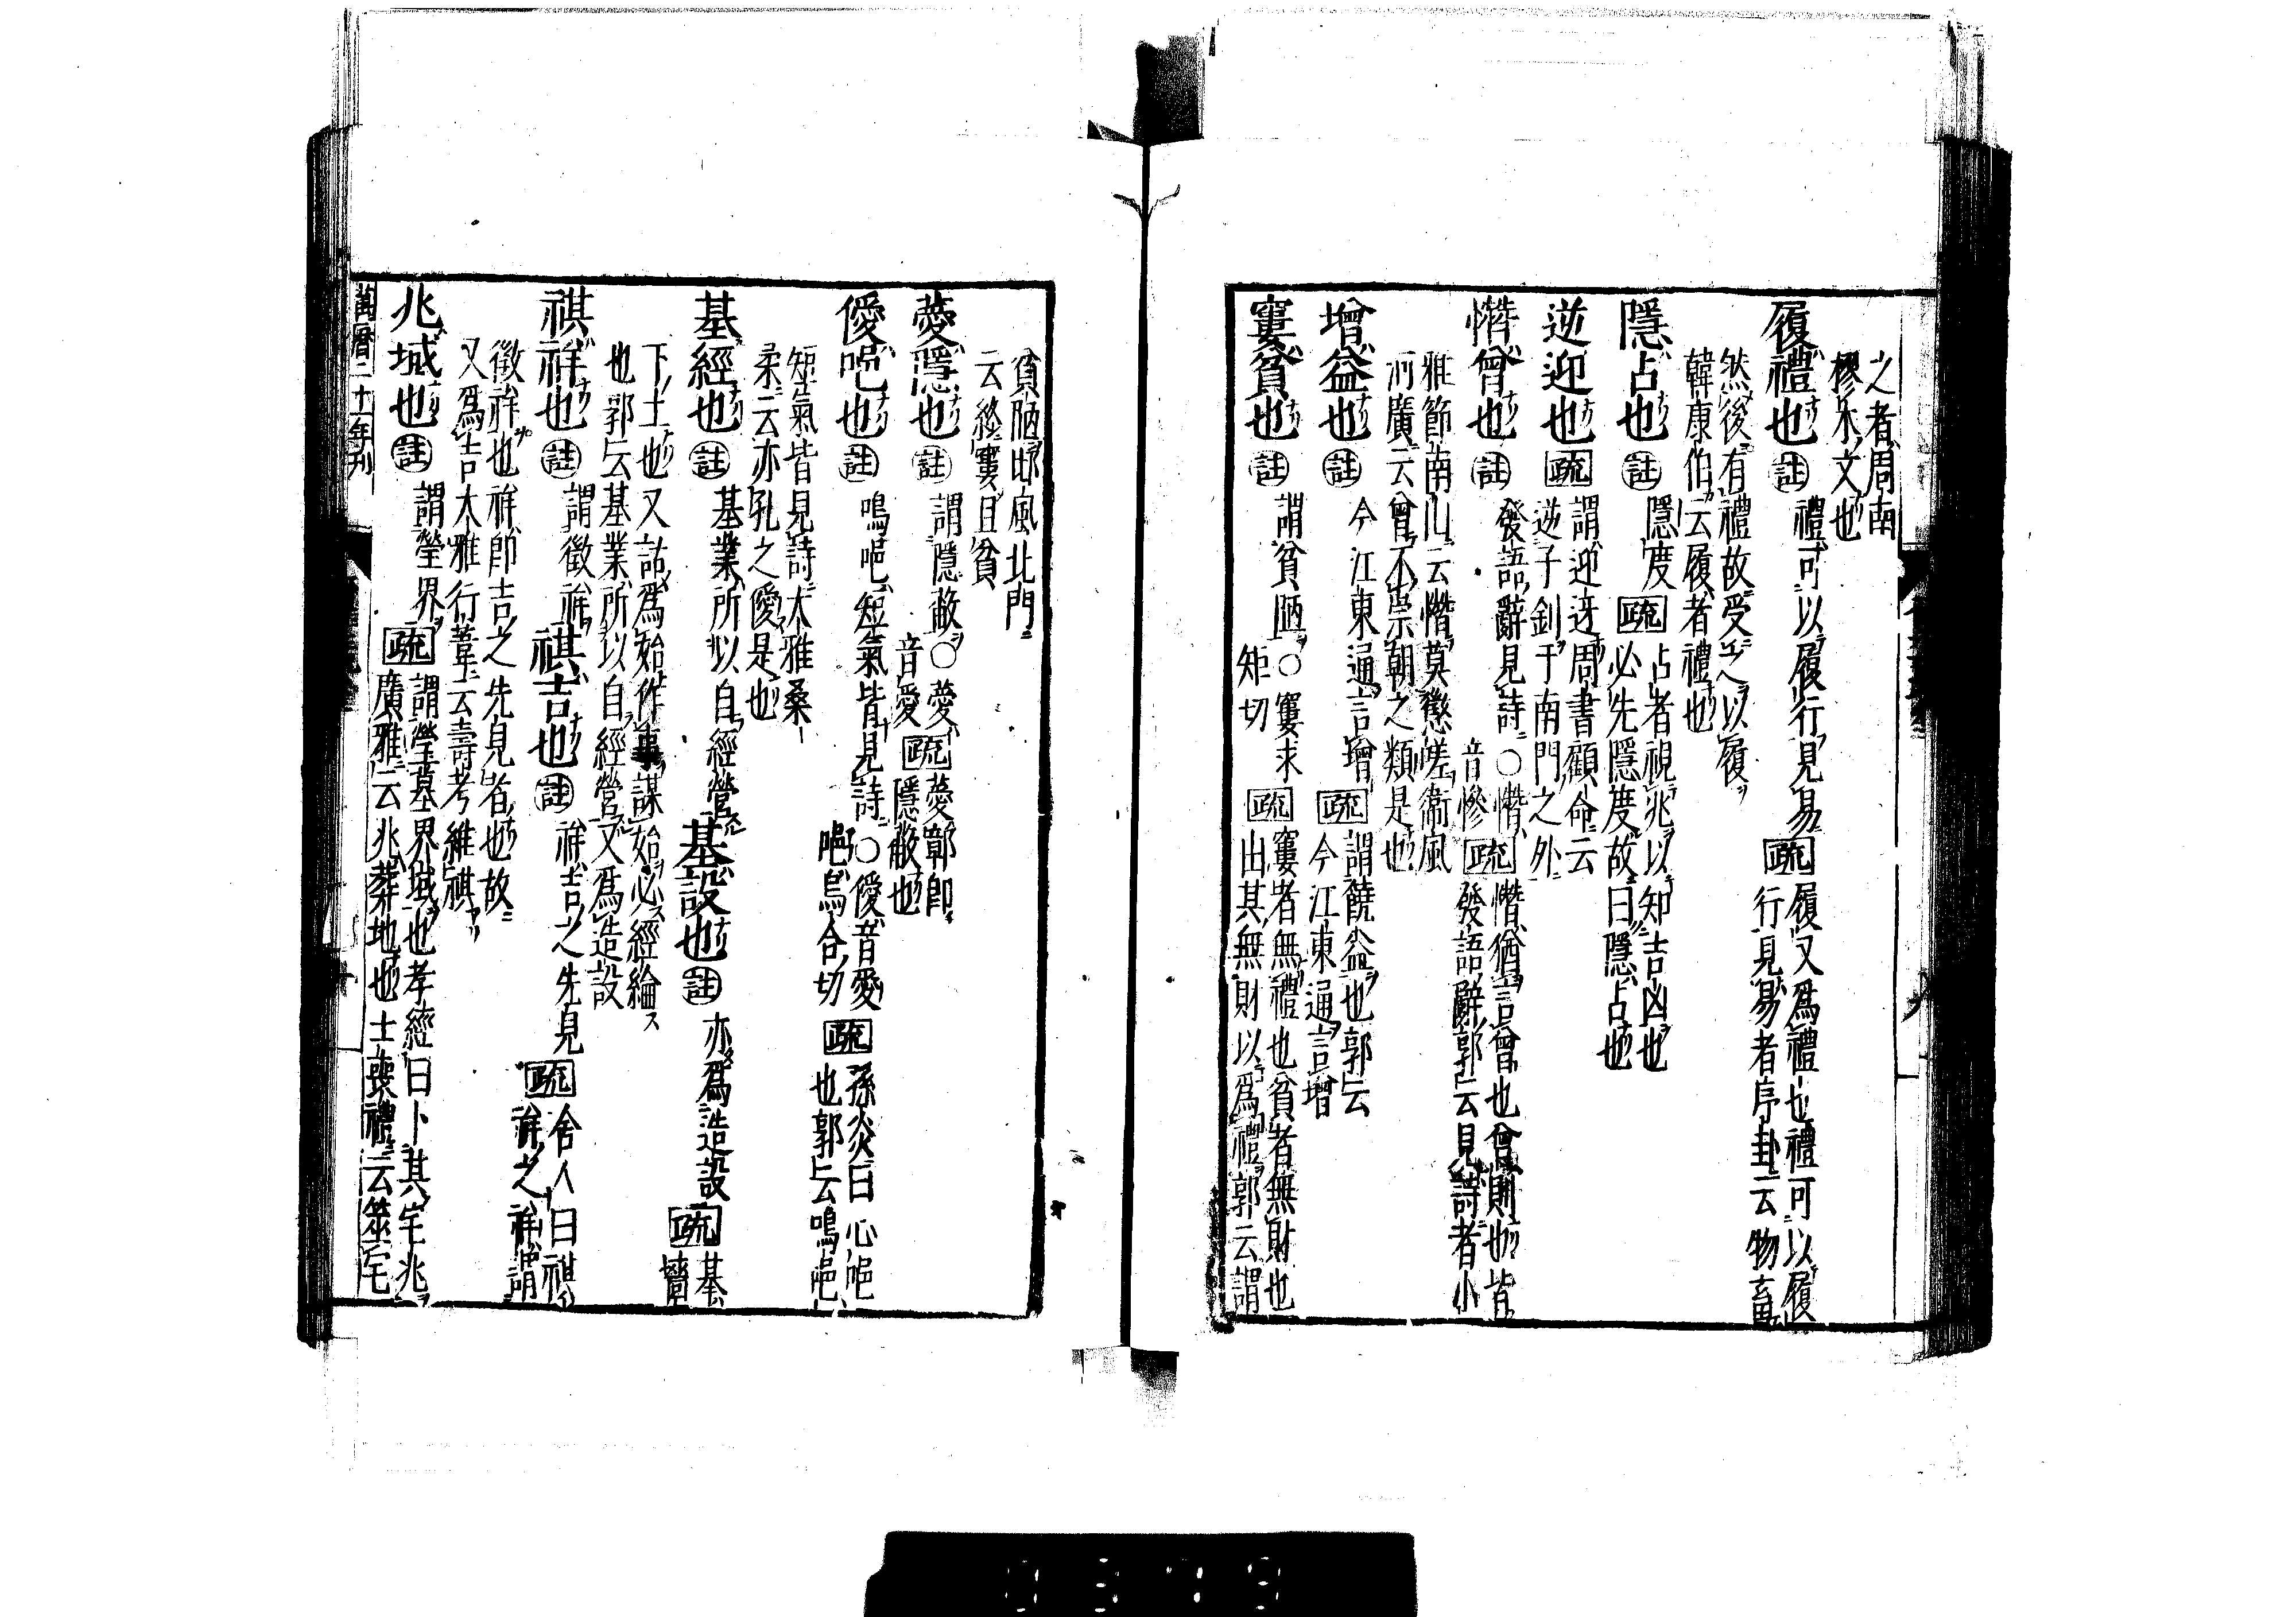 之者周南
樛木文也
履禮也 註 禮可以履行見易 疏 履又爲禮也禮可以履
行見易者序卦云物畜
然後有禮故受之以履
韓康伯云履者禮也
隱占也 註 隱度 疏 占者視兆以知吉凶也
必先隱度故曰隱占也
逆迎也 疏 謂迎迓周書顧命云
逆子釗于南門之外
憯曾也 註 發語辭見詩○憯
音慘 疏 憯猶言曾也曾則也皆
發語辭郭云見詩者小
雅節南山云憯莫懲嗟衞風
河廣云曾不崇朝之類是也
增益也 註 今江東通言增 疏 謂饒益也郭云
今江東通言增
窶貧也 註 謂貧陋○窶求
矩切 疏 窶者無禮也貧者無財也
出其無財以爲禮郭云謂
貧陋邶風北門
云終窶且貧
薆隱也 註 謂隱蔽○薆
音愛 疏 薆鄣卽
隱蔽也
僾唈也 註 嗚唈短氣皆見詩○僾音愛
唈烏合切 疏 孫炎曰心唈
也郭云嗚唈
短氣皆見詩大雅桑
柔云亦孔之僾是也
基經也 註 基業所以自經營 基設也 註 亦爲造設 疏 基
墻
下土也又詁爲始作事謀始必經綸
也郭云基業所以自經營又爲造設
祺祥也 註 謂徵祥 祺吉也 註 祥吉之先見 疏 舍人曰祺
祥之祥謂
徵祥也祥卽吉之先見者也故
又爲吉大雅行葦云壽考維祺
兆域也 註 謂塋界 疏 謂塋墓界域也孝經曰卜其宅兆
廣雅云兆葬地也士喪禮云筮宅
萬曆二十一年刊
0379